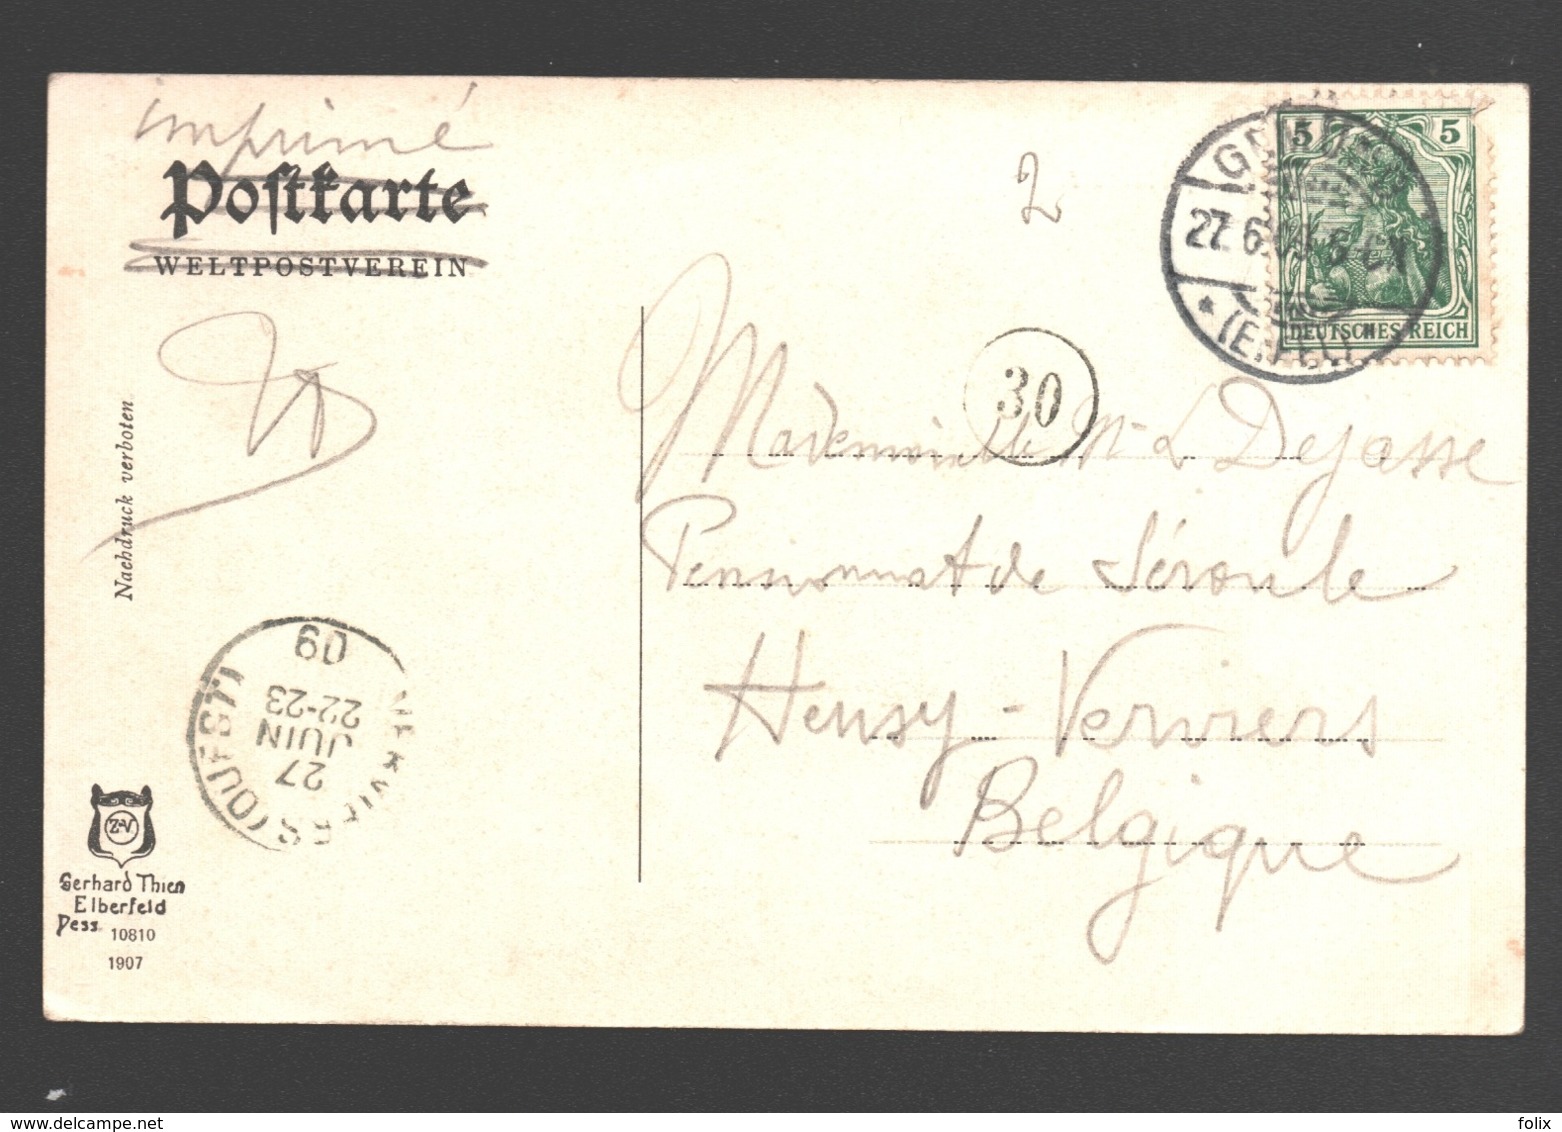 imprimé
Postkarte
WELTPOSTVEREIN
2
5 5
DEUTSCHES REICH
27.6.09
(EIFEL)
30
Mademoiselle M. L Dejasse
Pensionnat de Séroule
Heusy - Verviers
Belgique
Nachdruck verboten
VERVIERS (OUEST)
27
JUIN
22-23
09
Z-V
Gerhard Thien
Elberfeld
Dess. 10810
1907
folix